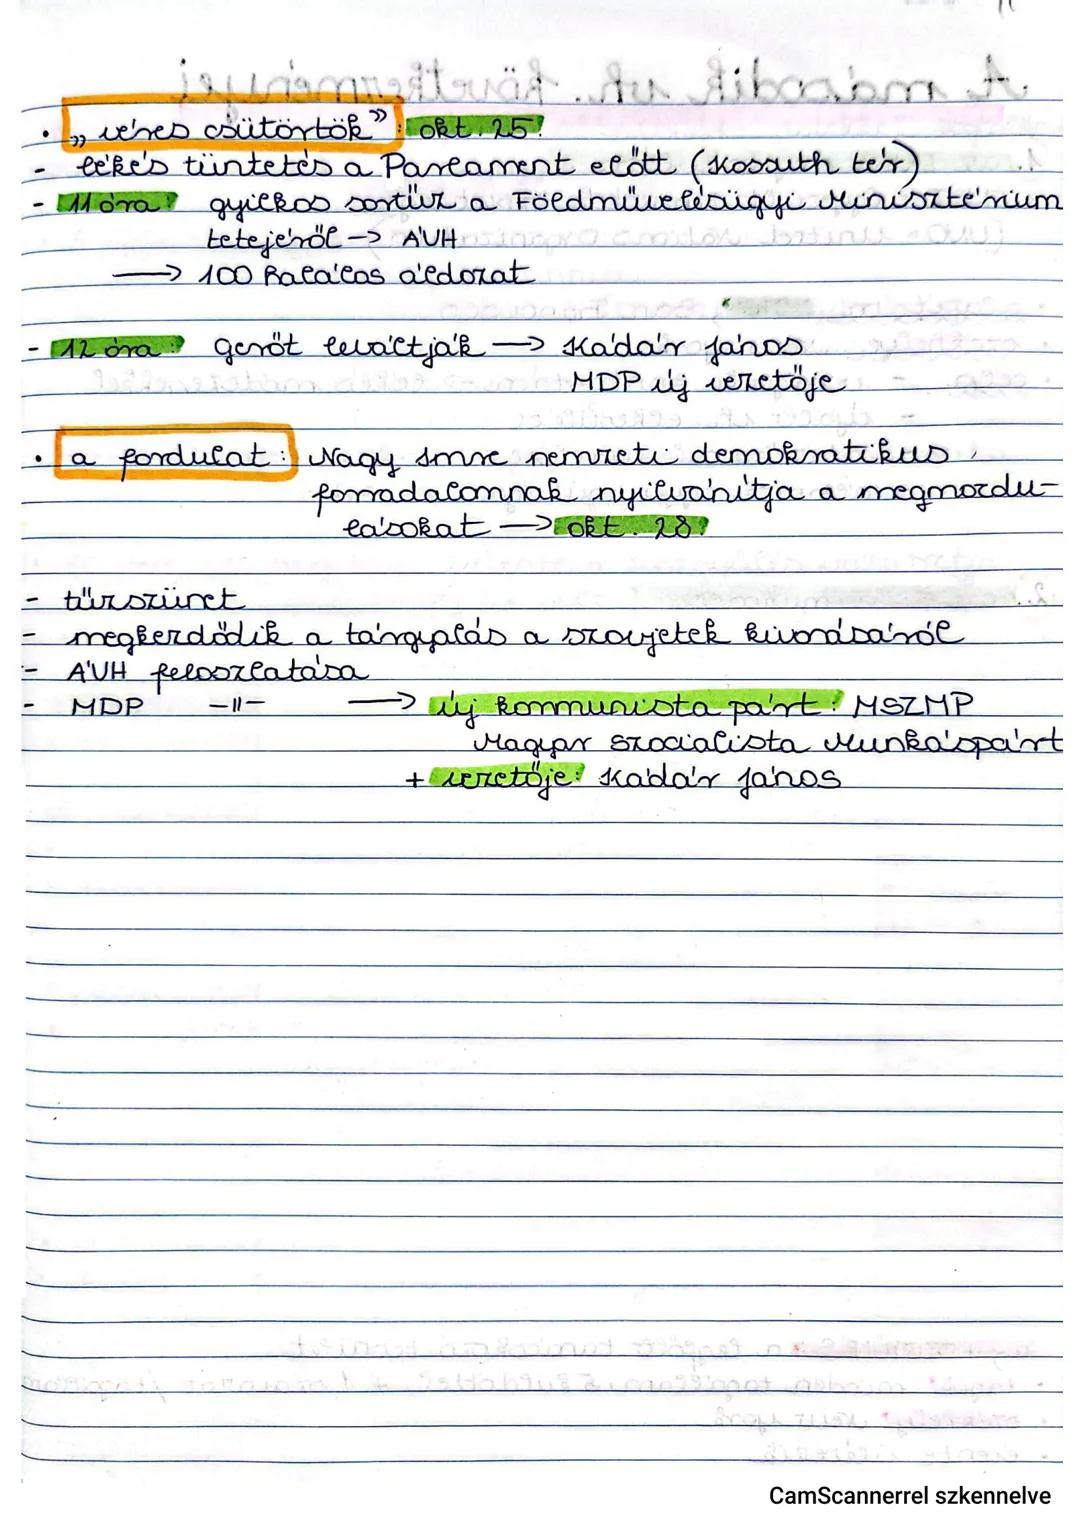 • „véres csütörtök”: okt. 25.
- békés tüntetés a Parlament előtt (Kossuth tér)
- 11 óra: gyilkos sortűz a Földművelésügyi Minisztérium
tetejéről → ÁVH
→ 100 halálos áldozat
- 12 óra: gerőt leváltják → Kádár János
MDP új vezetője
• a fordulat: Nagy Imre nemzeti demokratikus
forradalomnak nyilvánítja a megmozdu-
lásokat → okt. 28.
- tűzszünet
- megkezdődik a tárgyalás a szovjetek kivonásáról
- ÁVH feloszlatása
- MDP -||- → új kommunista párt: MSZMP
Magyar Szocialista Munkáspárt
+ vezetője: Kádár János
CamScannerrel szkennelve